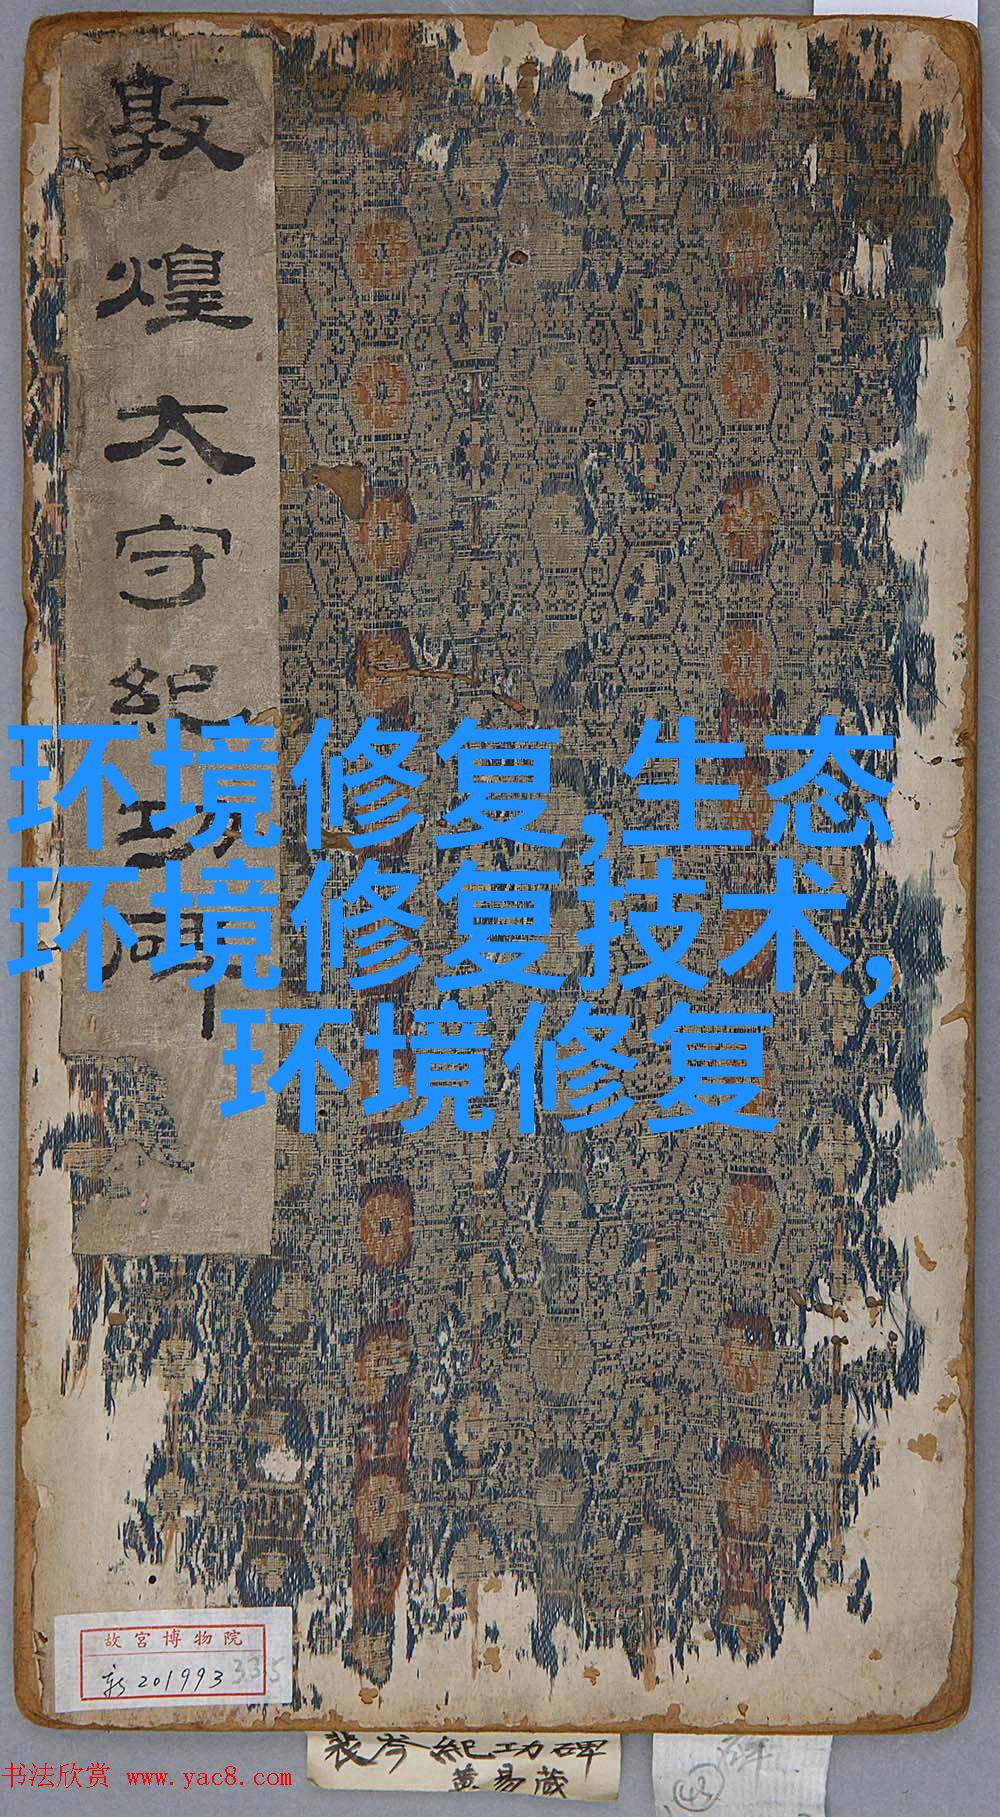 敦煌太守紀功碑
环境修复,生态
环境修复技术,
环境修复
故宫博物院
新201993
335
裴岑紀功碑
黄易藏
书法欣赏 www.yac8.com